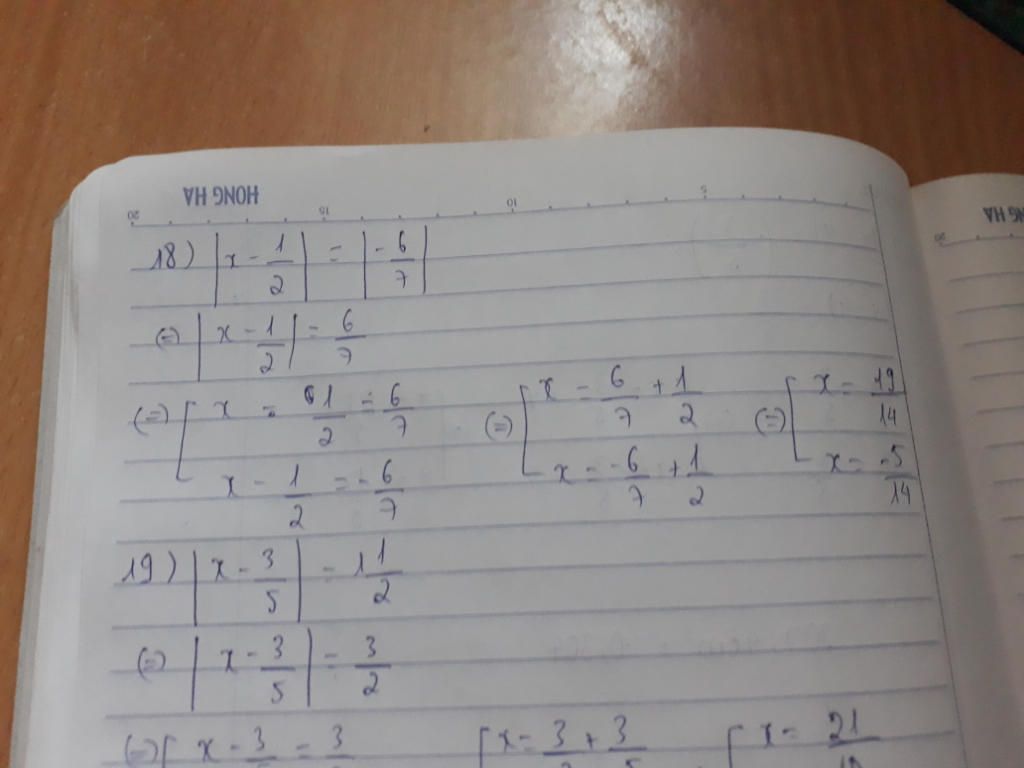 HONG HA
20 15 10 5
18) |x - 1/2| = |-6/7|
(=) |x - 1/2| = 6/7
(=) [ x - 1/2 = 6/7 (=) [ x = 6/7 + 1/2 (=) [ x = 19/14
x - 1/2 = -6/7 x = -6/7 + 1/2 x = -5/14
19) |x - 3/5| = 1 1/2
(=) |x - 3/5| = 3/2
(=) [ x - 3/5 = 3 [ x = 3 + 3/5 [ x = 21
HONG HA
20